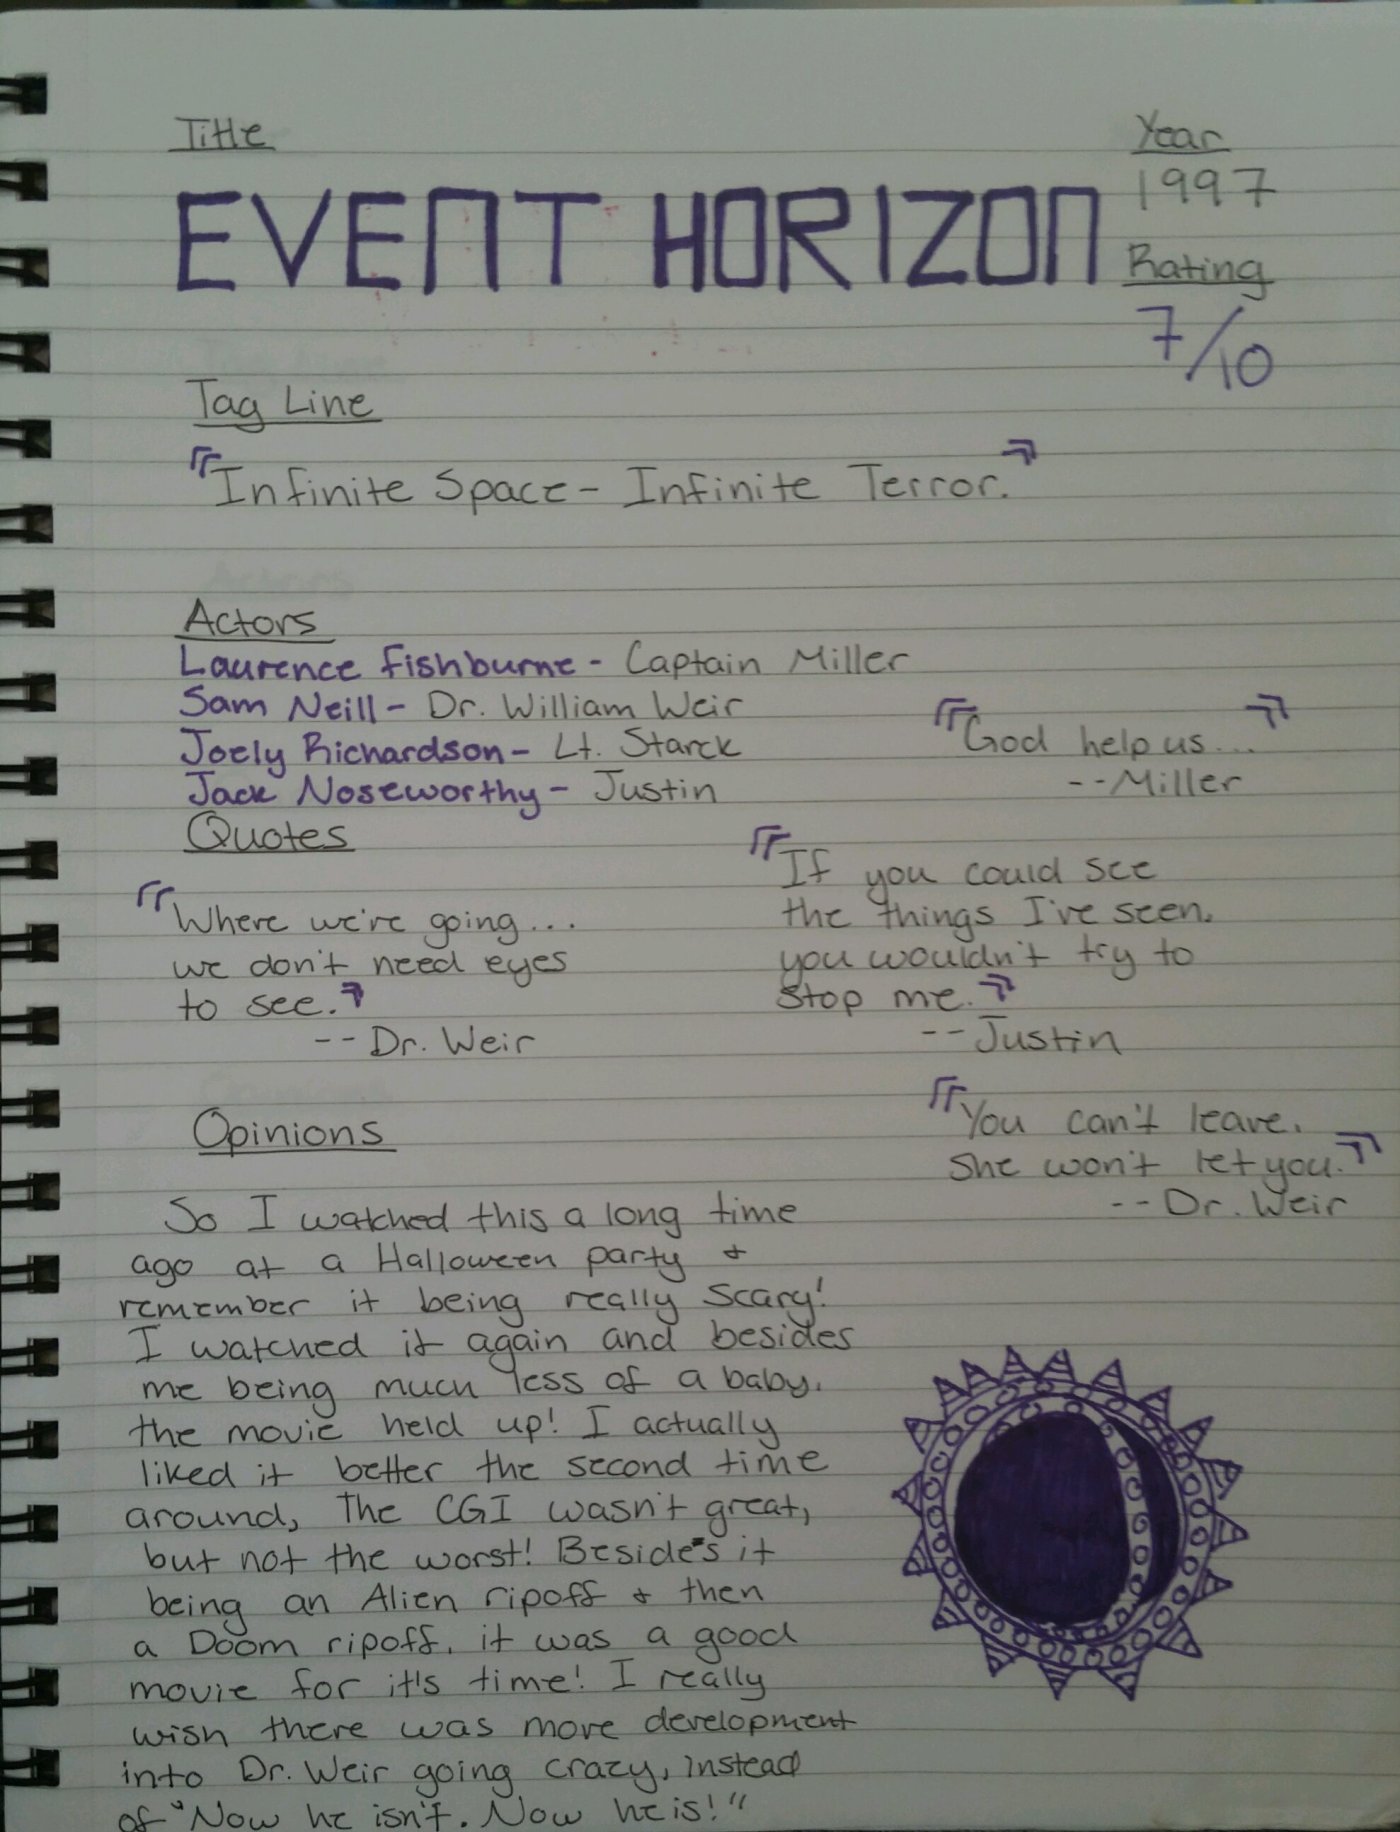 Title
EVENT HORIZON
Year
1997
Rating
7/10
Tag Line
"Infinite Space - Infinite Terror."
Actors
Laurence Fishburne - Captain Miller
Sam Neill - Dr. William Weir
Joely Richardson - Lt. Starck
Jack Noseworthy - Justin
"God help us..."
--Miller
Quotes
"Where we're going...
we don't need eyes
to see."
-- Dr. Weir
"If you could see
the things I've seen,
you wouldn't try to
stop me."
-- Justin
"You can't leave.
She won't let you."
-- Dr. Weir
Opinions
So I watched this a long time
ago at a Halloween party &
remember it being really scary!
I watched it again and besides
me being much less of a baby,
the movie held up! I actually
liked it better the second time
around, The CGI wasn't great,
but not the worst! Beside's it
being an Alien ripoff & then
a Doom ripoff, it was a good
movie for it's time! I really
wish there was more development
into Dr. Weir going crazy, instead
of "Now he isn't. Now he is!"